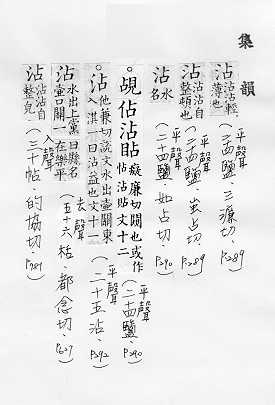 集韻
沾 沾沾輕薄也 (平聲 二四鹽．三濂切．P.289
沾 沾沾自整頓也 (平聲 二四鹽．蚩占切．P.289
沾 水名 (平聲 二十四鹽．如占切．P.290
。覘佔沾貼 癡廉切闚也或作佔沾貼文十二 (平聲 二四鹽．P.290)
。沾 他兼切說文水出壺關東入淇一曰沾益也文十一 (平聲 二十五沾．P.292)
沾 水出上黨壺口關一曰縣名在樂平 (去聲 五十六㮇．都念切．P.627
沾 沾沾自整皃 (入聲 三十帖．的協切．P.781